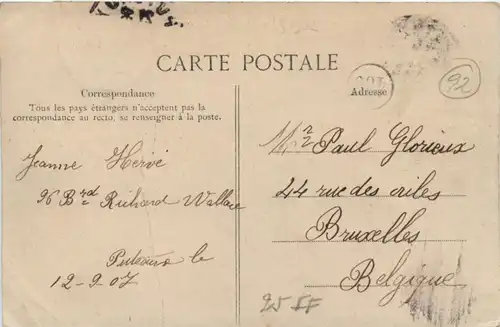 CARTE POSTALE
Correspondance
Tous les pays étrangers n'acceptent pas la
correspondance au recto, se renseigner à la poste.
Adresse
92
Jeanne Hervé
96 Brd Richard Wallace
Puteaux le
12-9-07
Mr Paul Glorieux
44 rue des
Bruxelles
Belgique
25 FF